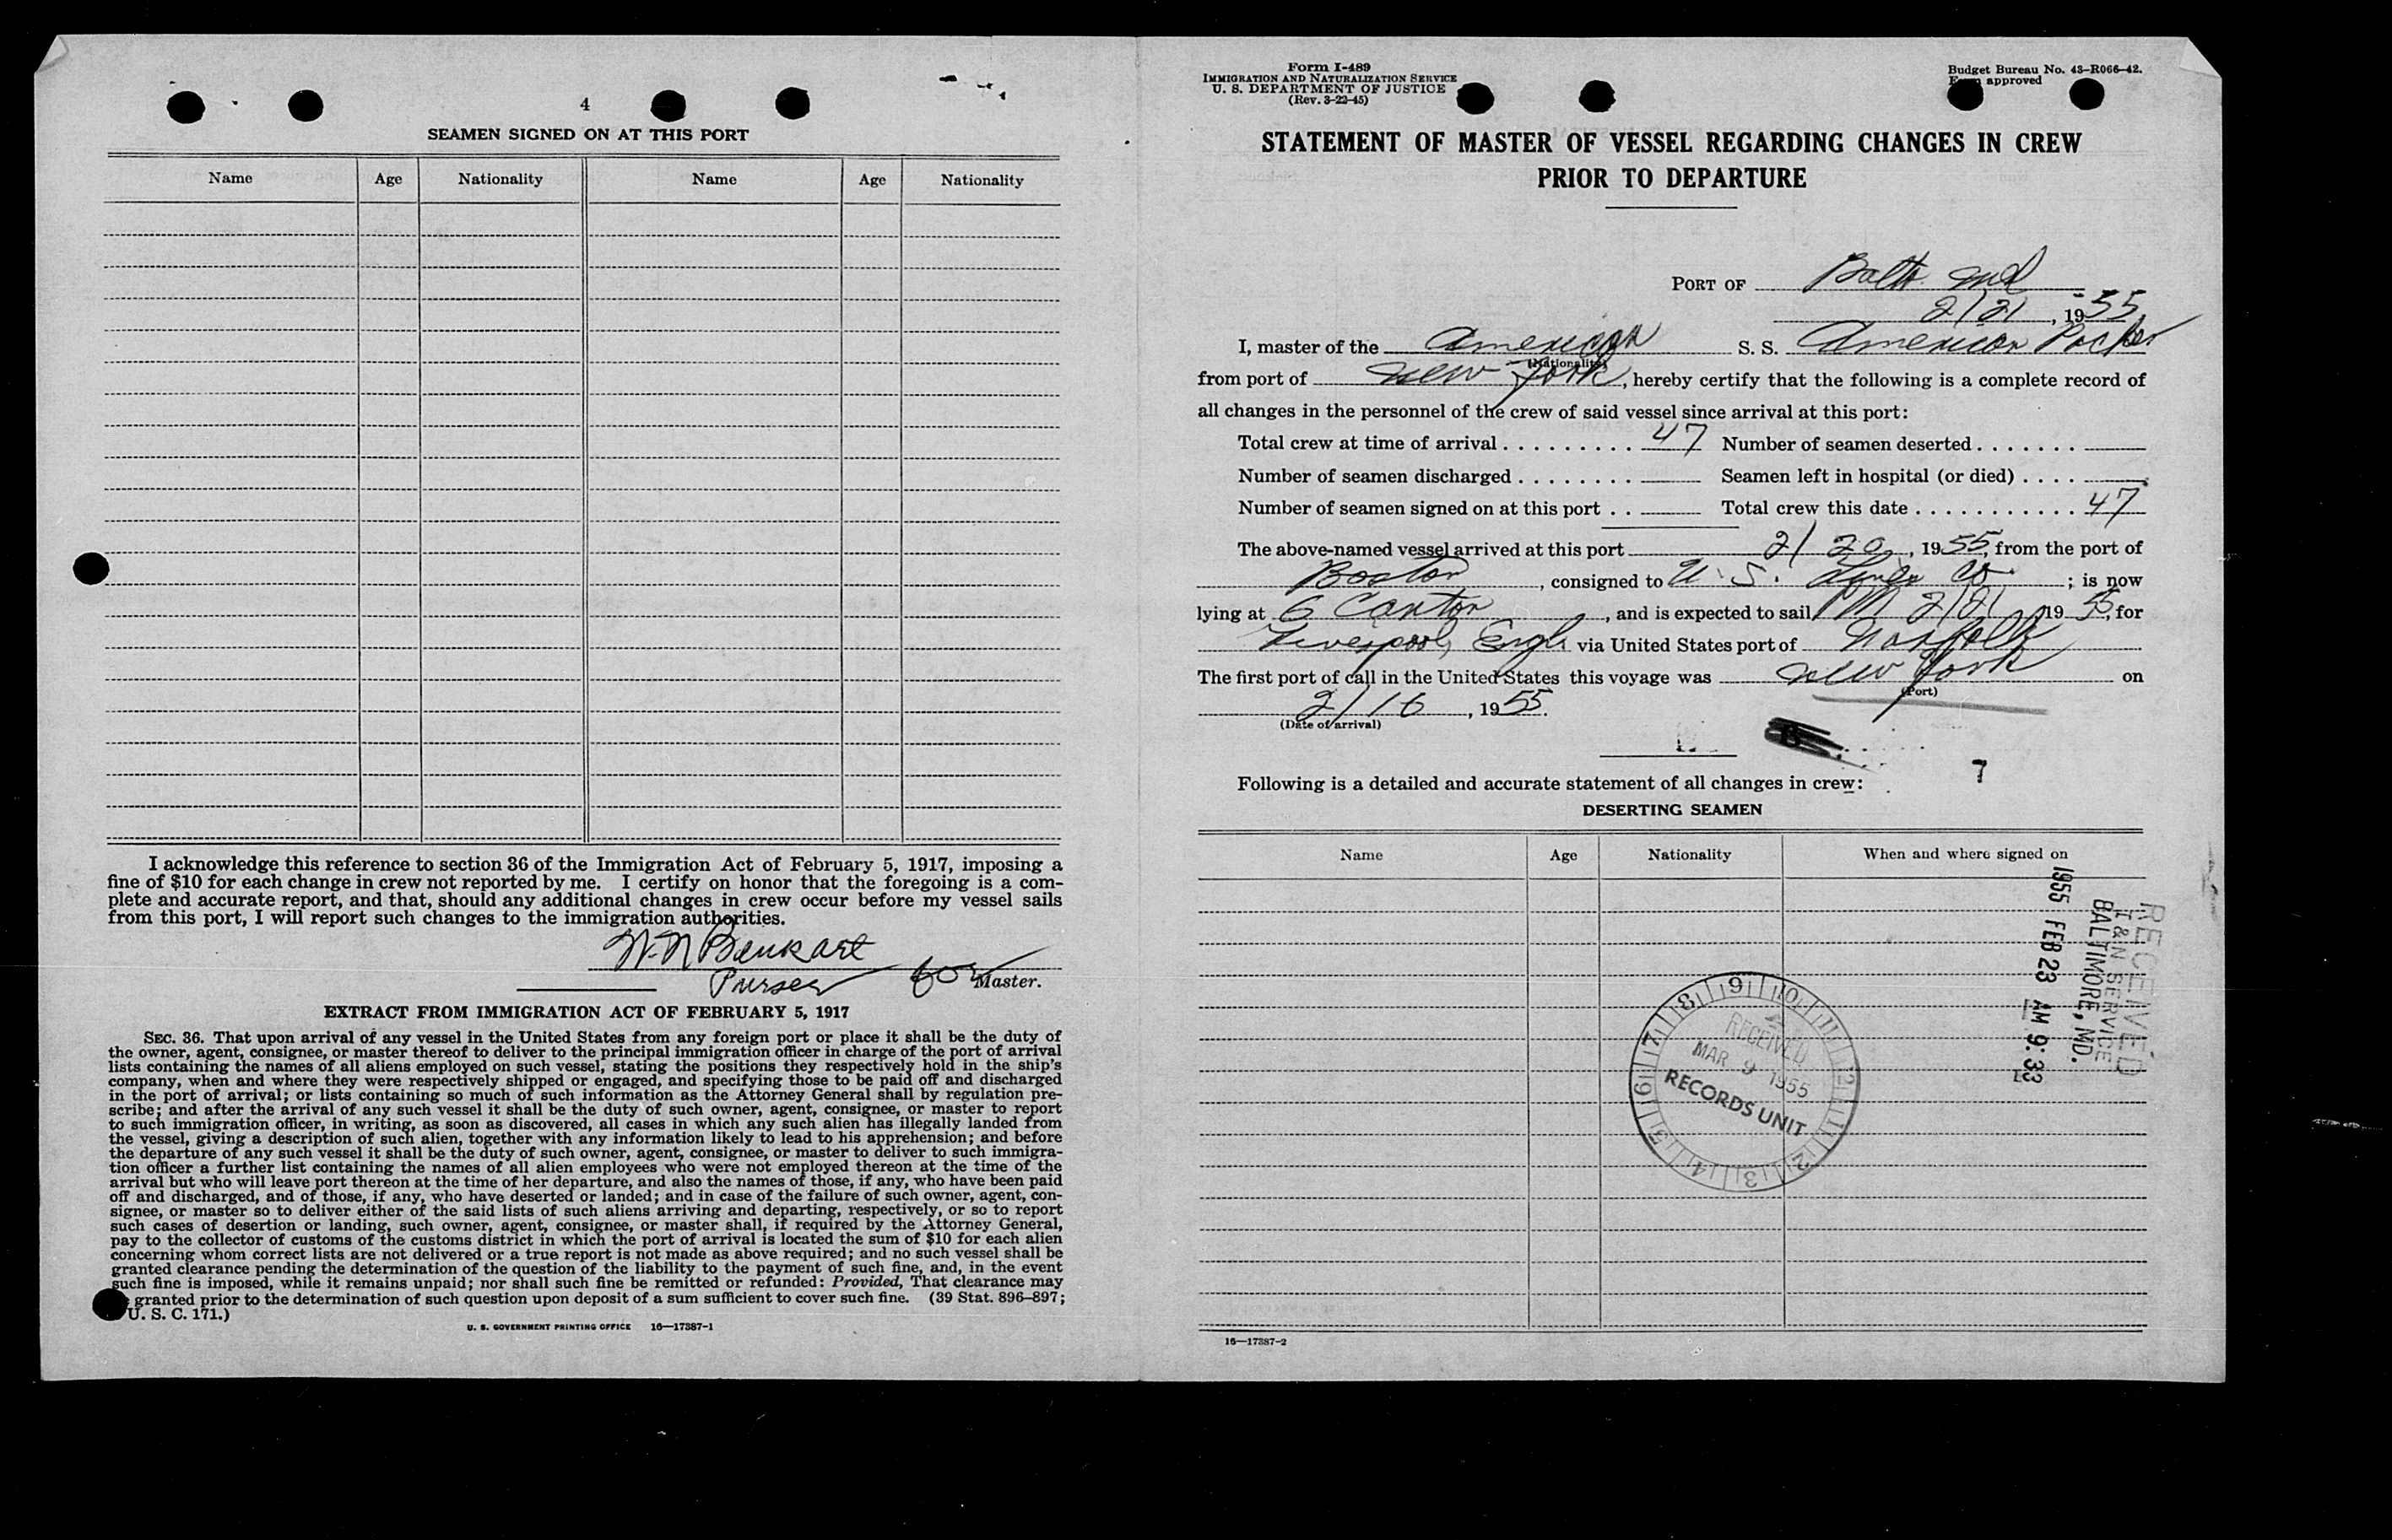 4
SEAMEN SIGNED ON AT THIS PORT
Name Age Nationality Name Age Nationality
I acknowledge this reference to section 36 of the Immigration Act of February 5, 1917, imposing a
fine of $10 for each change in crew not reported by me. I certify on honor that the foregoing is a com-
plete and accurate report, and that, should any additional changes in crew occur before my vessel sails
from this port, I will report such changes to the immigration authorities.
W. N Benkart
Purser for Master.
EXTRACT FROM IMMIGRATION ACT OF FEBRUARY 5, 1917
SEC. 36. That upon arrival of any vessel in the United States from any foreign port or place it shall be the duty of
the owner, agent, consignee, or master thereof to deliver to the principal immigration officer in charge of the port of arrival
lists containing the names of all aliens employed on such vessel, stating the positions they respectively hold in the ship's
company, when and where they were respectively shipped or engaged, and specifying those to be paid off and discharged
in the port of arrival; or lists containing so much of such information as the Attorney General shall by regulation pre-
scribe; and after the arrival of any such vessel it shall be the duty of such owner, agent, consignee, or master to report
to such immigration officer, in writing, as soon as discovered, all cases in which any such alien has illegally landed from
the vessel, giving a description of such alien, together with any information likely to lead to his apprehension; and before
the departure of any such vessel it shall be the duty of such owner, agent, consignee, or master to deliver to such immigra-
tion officer a further list containing the names of all alien employees who were not employed thereon at the time of the
arrival but who will leave port thereon at the time of her departure, and also the names of those, if any, who have been paid
off and discharged, and of those, if any, who have deserted or landed; and in case of the failure of such owner, agent, con-
signee, or master so to deliver either of the said lists of such aliens arriving and departing, respectively, or so to report
such cases of desertion or landing, such owner, agent, consignee, or master shall, if required by the Attorney General,
pay to the collector of customs of the customs district in which the port of arrival is located the sum of $10 for each alien
concerning whom correct lists are not delivered or a true report is not made as above required; and no such vessel shall be
granted clearance pending the determination of the question of the liability to the payment of such fine, and, in the event
such fine is imposed, while it remains unpaid; nor shall such fine be remitted or refunded: Provided, That clearance may
granted prior to the determination of such question upon deposit of a sum sufficient to cover such fine. (39 Stat. 896–897;
U. S. C. 171.)
U. S. GOVERNMENT PRINTING OFFICE 16—17387-1
Form I-489
IMMIGRATION AND NATURALIZATION SERVICE
U. S. DEPARTMENT OF JUSTICE
(Rev. 3-22-45)
Budget Bureau No. 43-R066-42.
Form approved
STATEMENT OF MASTER OF VESSEL REGARDING CHANGES IN CREW
PRIOR TO DEPARTURE
PORT OF Balto. Md
2/21, 1955
I, master of the American S. S. American Packer
(Nationality)
from port of New York, hereby certify that the following is a complete record of
all changes in the personnel of the crew of said vessel since arrival at this port:
Total crew at time of arrival 47 Number of seamen deserted
Number of seamen discharged Seamen left in hospital (or died)
Number of seamen signed on at this port Total crew this date 47
The above-named vessel arrived at this port 2/20, 1955, from the port of
Boston, consigned to U. S. Lines Co.; is now
lying at 6 Canton, and is expected to sail PM 2/21 1955, for
Liverpool, Engl. via United States port of Norfolk
The first port of call in the United States this voyage was New York on
(Port)
2/16, 1955.
(Date of arrival)
7
Following is a detailed and accurate statement of all changes in crew:
DESERTING SEAMEN
Name Age Nationality When and where signed on
RECEIVED
I & N SERVICE
BALTIMORE, MD.
1955 FEB 23 AM 9:33
9 10 11 12 1 2 3 4 5 6 7 8
RECEIVED
MAR 9 1955
RECORDS UNIT
16—17387-2